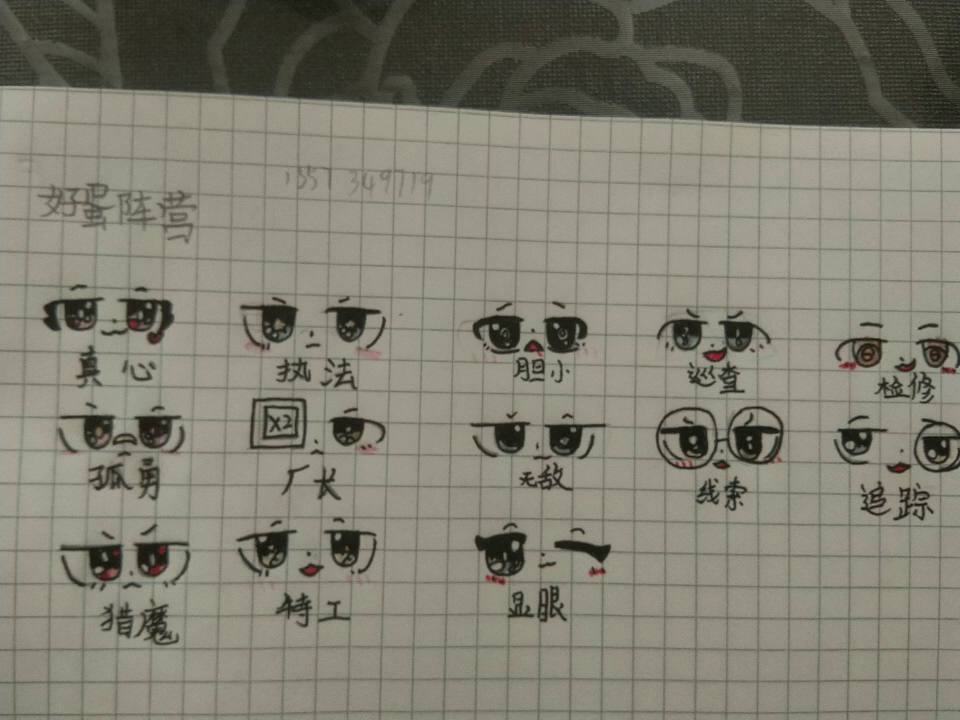 好蛋阵营
1557349719
真心 执法 胆小 巡查 检修
X2
孤勇 厂长 无敌 线索 追踪
猎魔 特工 显眼